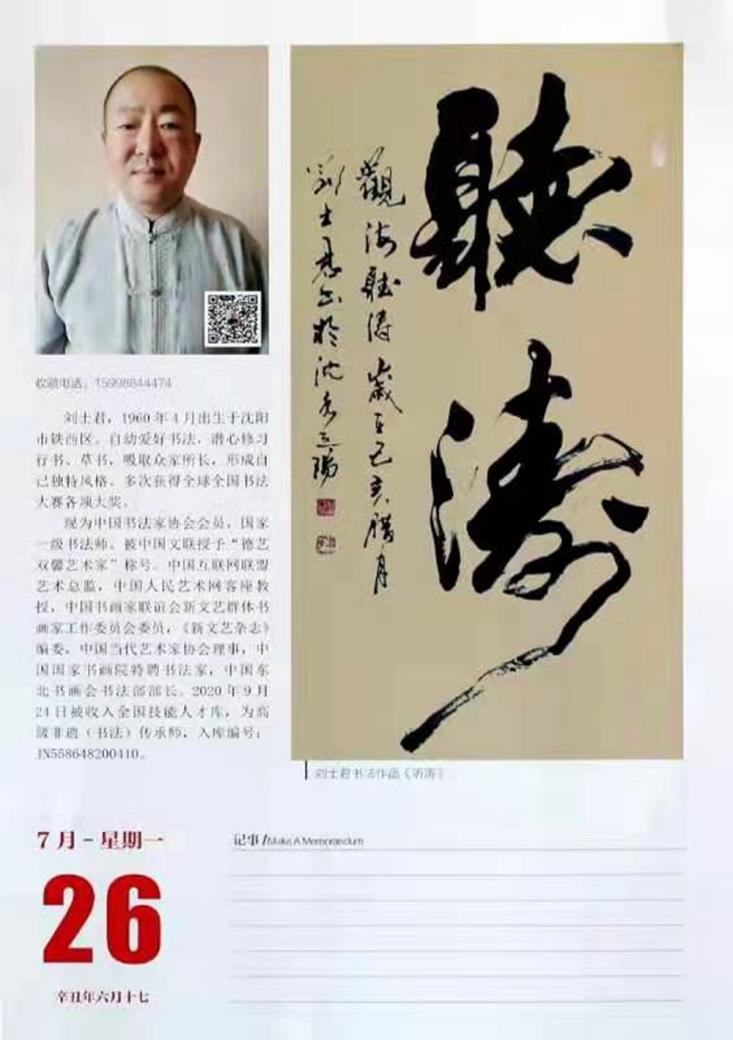 收藏电话：15998844474
刘士君，1960年4月出生于沈阳
市铁西区。自幼爱好书法，潜心修习
行书、草书，吸取众家所长，形成自
己独特风格。多次获得全球全国书法
大赛各项大奖。
现为中国书法家协会会员，国家
一级书法师。被中国文联授予“德艺
双馨艺术家”称号。中国互联网联盟
艺术总监，中国人民艺术网客座教
授，中国书画家联谊会新文艺群体书
画家工作委员会委员，《新文艺杂志》
编委，中国当代艺术家协会理事，中
国国家书画院特聘书法家，中国东
北书画会书法部部长。2020年9月
24日被收入全国技能人才库，为高
级非遗（书法）传承师，入库编号：
JN558648200410。
聽濤
觀海聽濤 歲在己亥臘月
劉士君書於沈水之陽
刘士君书法作品《听涛》
7月-星期一
26
辛丑年六月十七
记事/Make A Memorandum